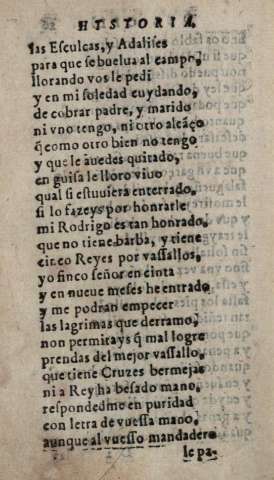 HISTORIA
las Esculcas, y Adalises
para que se buelua al campo,
llorando vos le pedi
y en mi soledad cuydando,
de cobrar padre, y marido
ni vno tengo, ni otro alcãço
q̃ como otro bien no tengo
y que le auedes quitado,
en guisa le lloro viuo
qual si estuuiera enterrado,
si lo fazeys por honrarle
mi Rodrigo es tan honrado,
que no tiene barba, y tiene
cinco Reyes por vassallos,
yo finco señor en cinta
y en nueue meses he entrado
y me podran empecer
las lagrimas que derramo,
non permitays q̃ mal logre
prendas del mejor vassallo,
que tiene Cruzes bermejas
ni a Rey ha besado mano,
respondedme en puridad
con letra de vuessa mano,
aunque al vuesso mandadero
le pa-